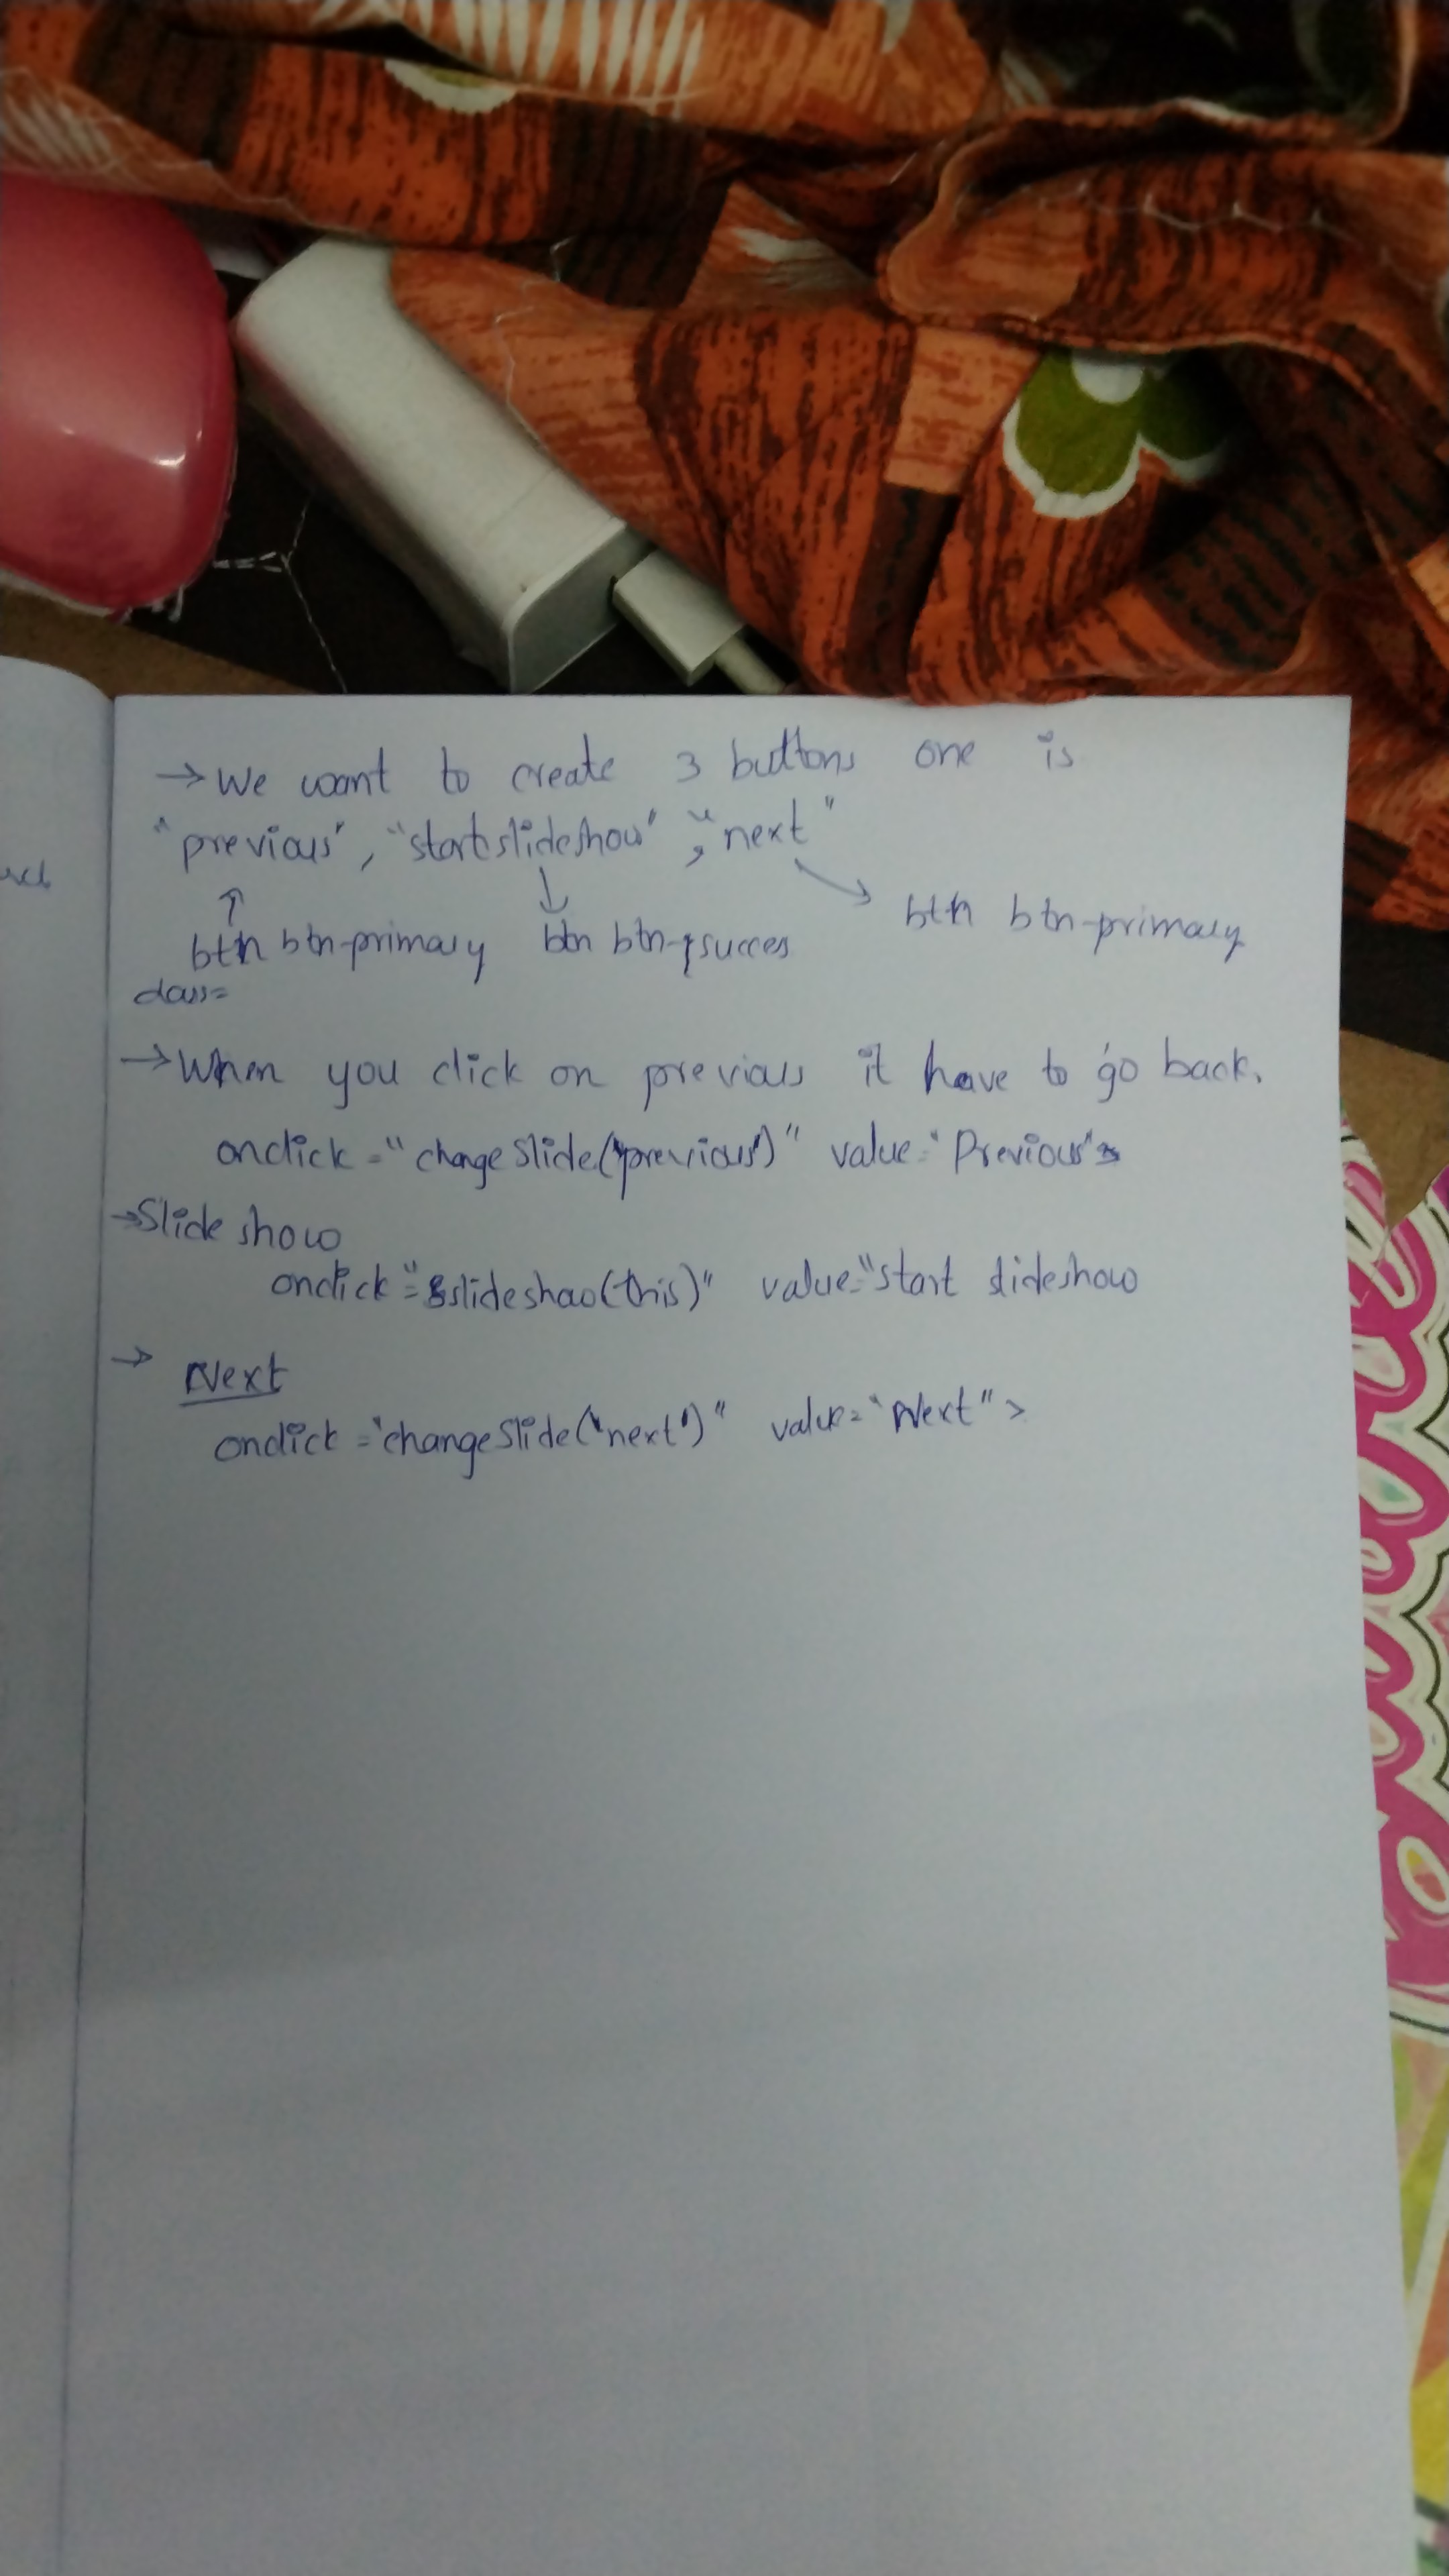 → We want to create 3 buttons one is
"previous", "startslideshow", "next"
btn btn-primary btn btn-succes btn btn-primary
class=
→ When you click on previous it have to go back.
onclick="changeSlide('previous')" value="Previous">
→ Slide show
onclick="slideshao(this)" value="start slideshow
→ Next
onclick="changeSlide('next')" value="Next">